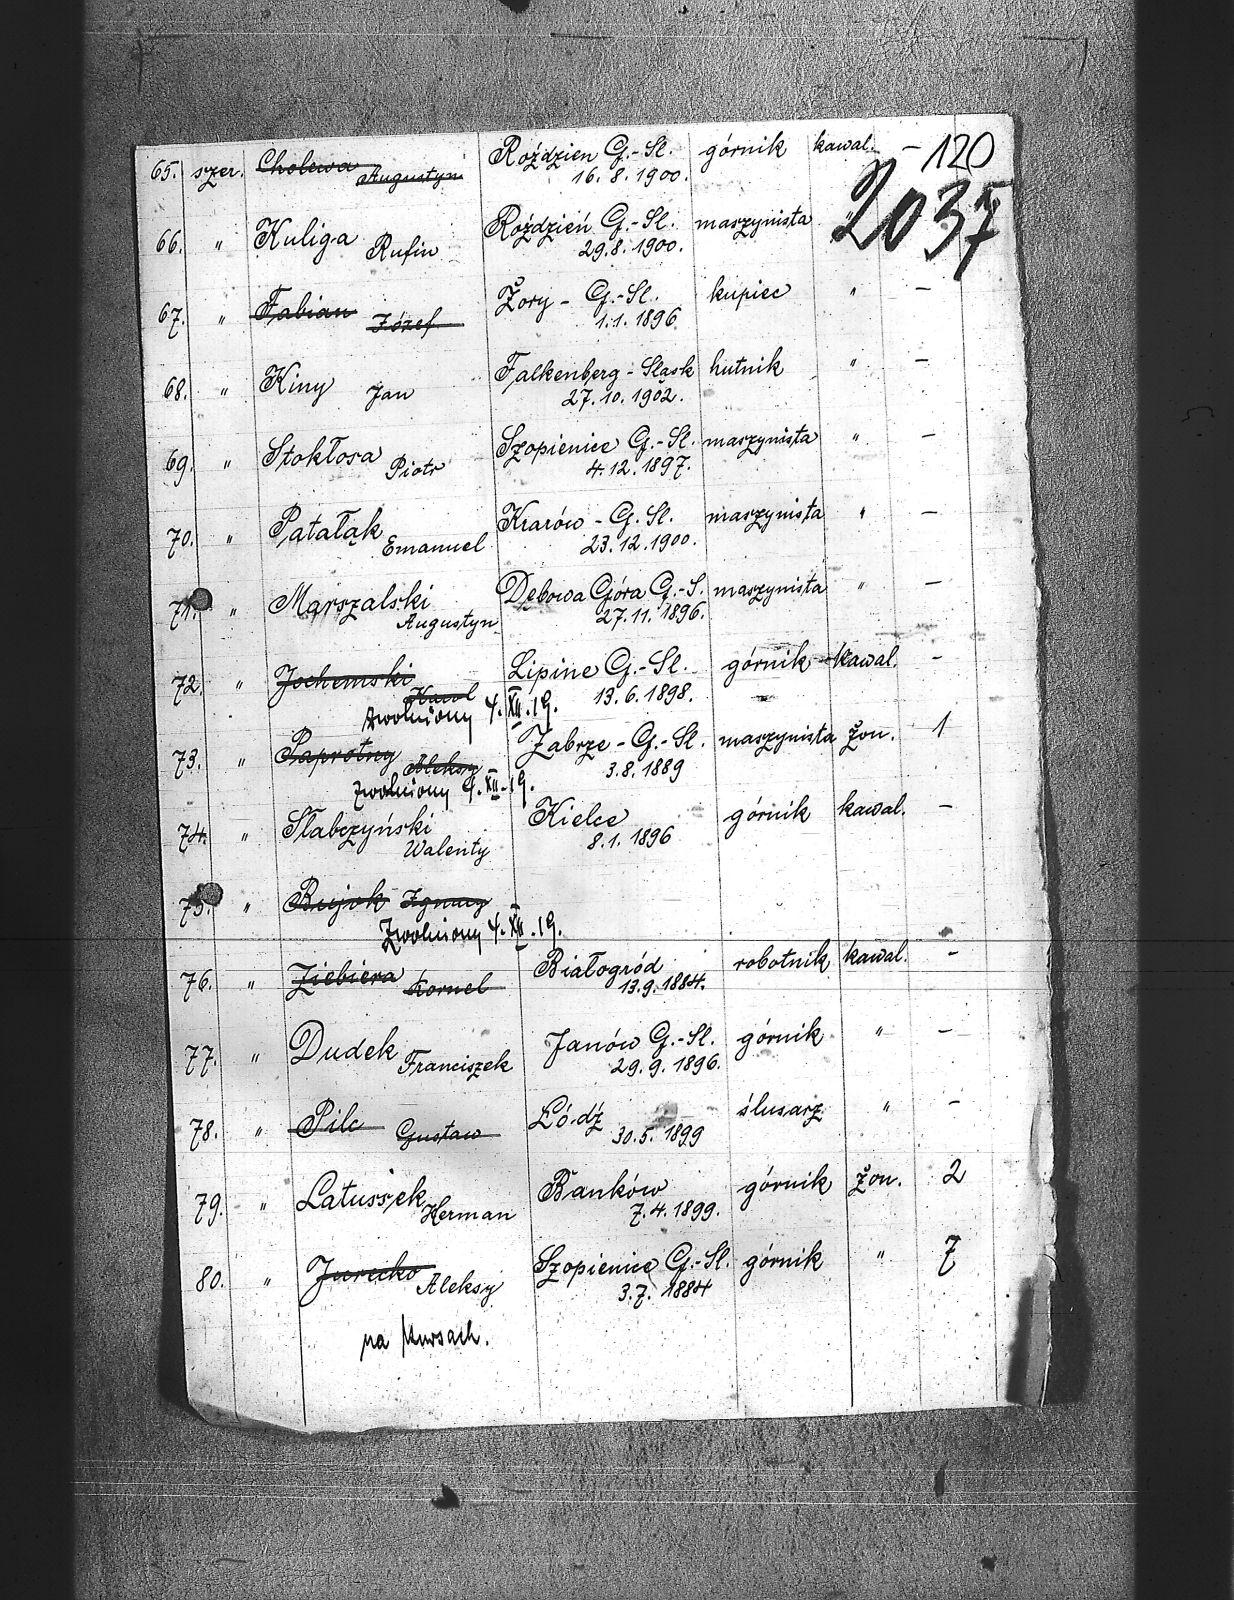 120
2037
65. szer. Cholewa Augustyn Roździen G.-Sl. 16.8.1900. górnik kawal. –
66. " Kuliga Rufin Roździeń G.-Sl. 29.8.1900. maszynista "
67. " Fabian Józef Żory - G.-Sl. 1.1.1896. kupiec " –
68. " Kiny Jan Falkenberg - Slask 27.10.1902. hutnik " –
69. " Stokłosa Piotr Szopienice G.-Sl. 4.12.1897. maszynista " –
70. " Patałąk Emanuel Krarów - G.Sl. 23.12.1900. maszynista " –
71. " Marszalski Augustyn Dębowa Góra G.-S. 27.11.1896. maszynista " –
72. " Jochemski Karol Lipine G.-Sl. 13.6.1898. górnik kawal. –
zwolniony 4.XII.19.
73. " Paprotny Aleksy Zabrze - G.-Sl. 3.8.1889 maszynista żon. 1
zwolniony 4.XII.19.
74. " Słabczyński Walenty Kielce 8.1.1896 górnik kawal. –
75. " Bujok Ignacy
Zwolniony 4.XII.19.
76. " Ziebiera Kornel Białogród 13.9.1884. robotnik kawal. –
77. " Dudek Franciszek Janów G.-Sl. 29.9.1896. górnik " –
78. " Pilc Gustaw Łódź 30.5.1899 ślusarz " –
79. " Latussek Herman Banków 7.4.1899. górnik żon. 2
80. " Jurecko Aleksy Szopienice G.-Sl. 3.7.1884 górnik " 7
na kursach.